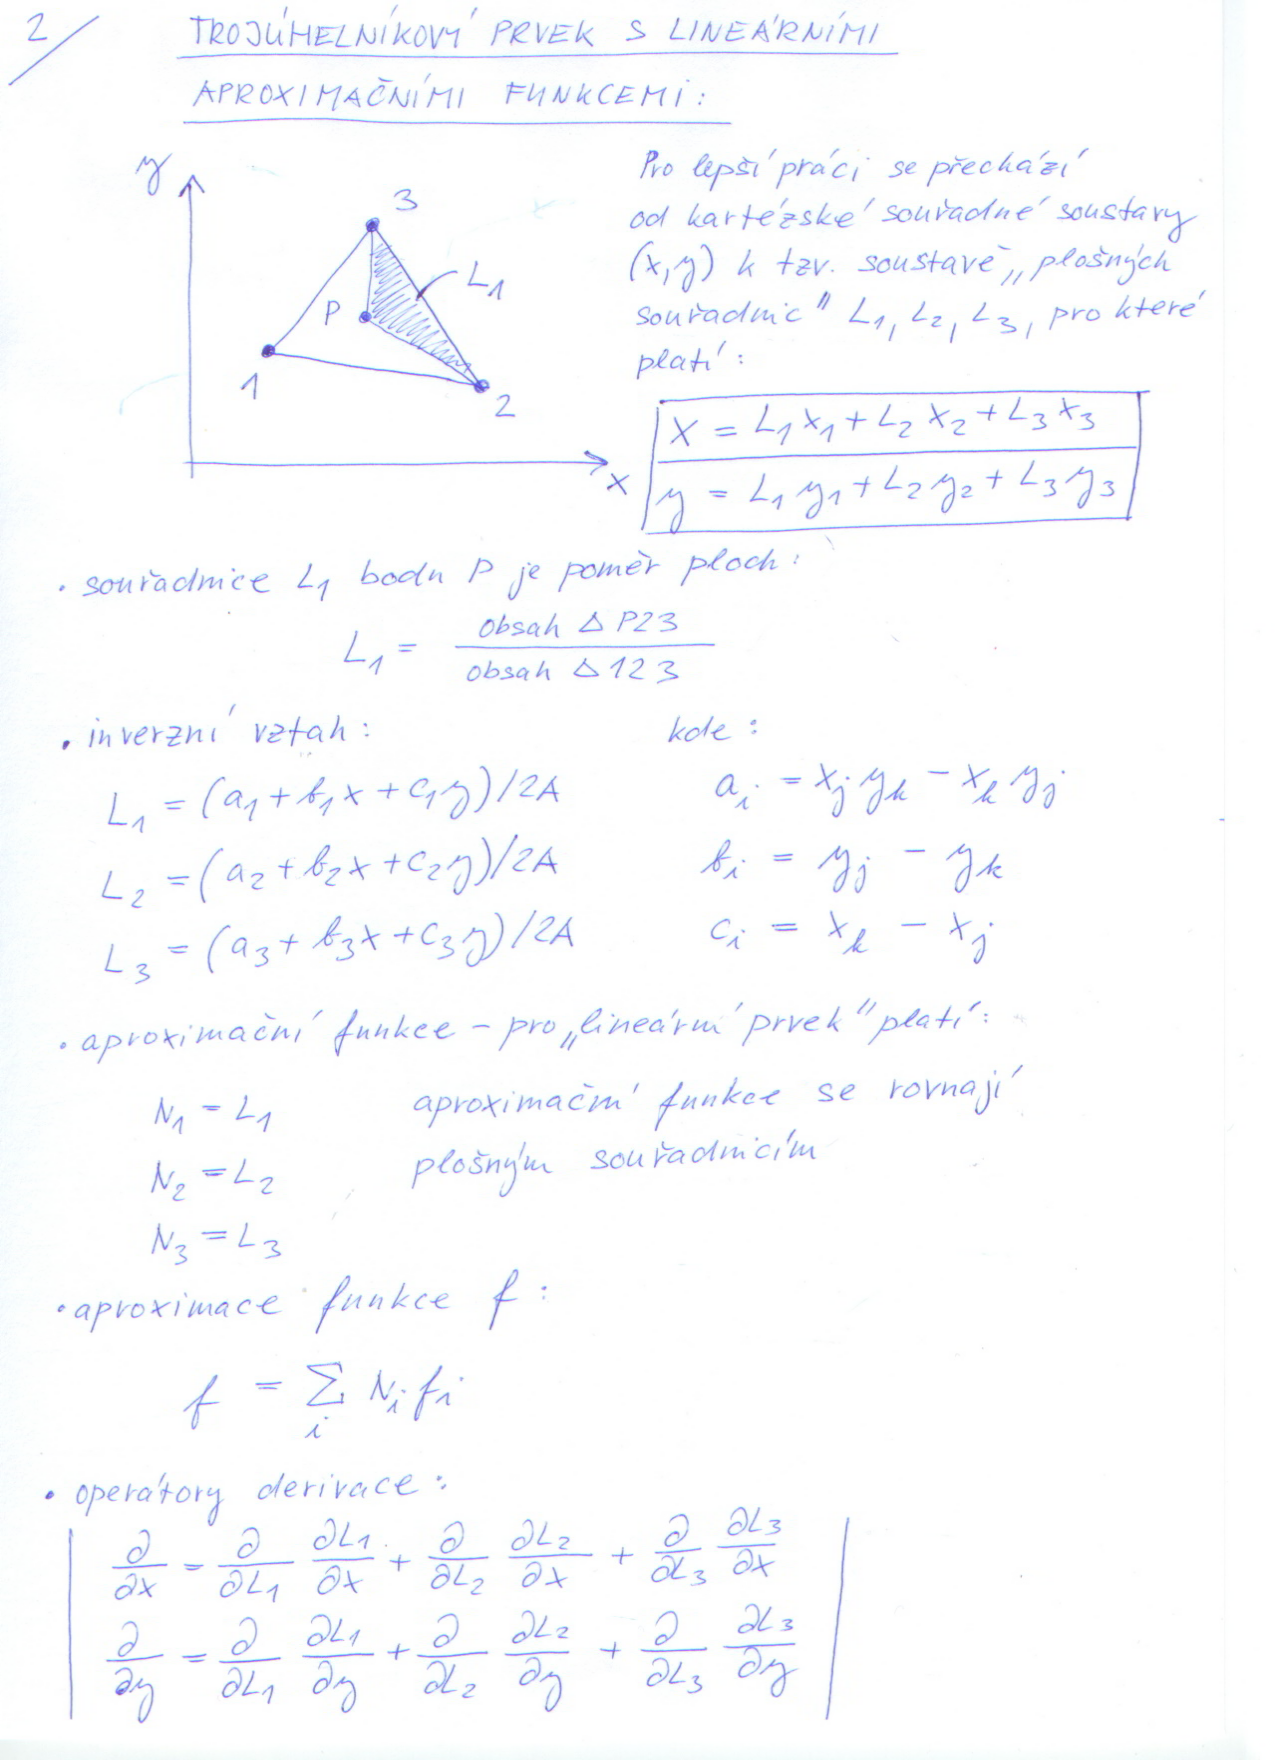 2
TROJÚHELNÍKOVÝ PRVEK S LINEÁRNÍMI
APROXIMAČNÍMI FUNKCEMI:
y
3
P
L₁
1
2
x
Pro lepší práci se přechází
od kartézské souřadné soustavy
(x,y) k tzv. soustavě „plošných
souřadnic" L₁, L₂, L₃, pro které
platí:
x = L₁x₁ + L₂x₂ + L₃x₃
y = L₁y₁ + L₂y₂ + L₃y₃
• souřadnice L₁ bodu P je poměr ploch:
L₁ = obsah Δ P23 / obsah Δ 123
• inverzní vztah: kde:
L₁ = (a₁ + b₁x + c₁y)/2A aᵢ = xⱼyₖ − xₖyⱼ
L₂ = (a₂ + b₂x + c₂y)/2A bᵢ = yⱼ − yₖ
L₃ = (a₃ + b₃x + c₃y)/2A cᵢ = xₖ − xⱼ
• aproximační funkce – pro „lineární prvek" platí:
N₁ = L₁ aproximační funkce se rovnají
N₂ = L₂ plošným souřadnicím
N₃ = L₃
• aproximace funkce f:
f = Σᵢ Nᵢ fᵢ
• operátory derivace:
∂/∂x = ∂/∂L₁ ∂L₁/∂x + ∂/∂L₂ ∂L₂/∂x + ∂/∂L₃ ∂L₃/∂x
∂/∂y = ∂/∂L₁ ∂L₁/∂y + ∂/∂L₂ ∂L₂/∂y + ∂/∂L₃ ∂L₃/∂y